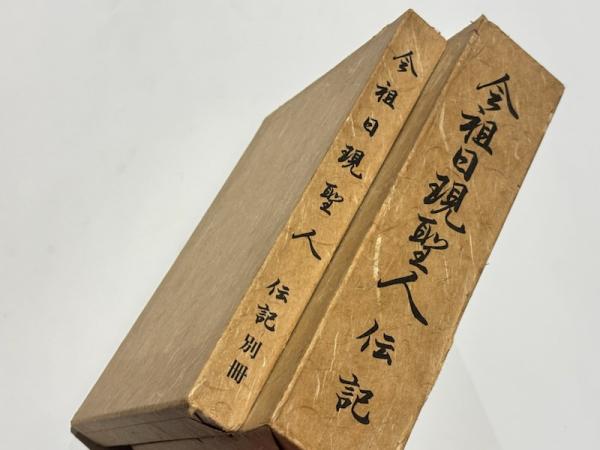 会祖日現聖人 伝記
会祖日現聖人 伝記 別冊